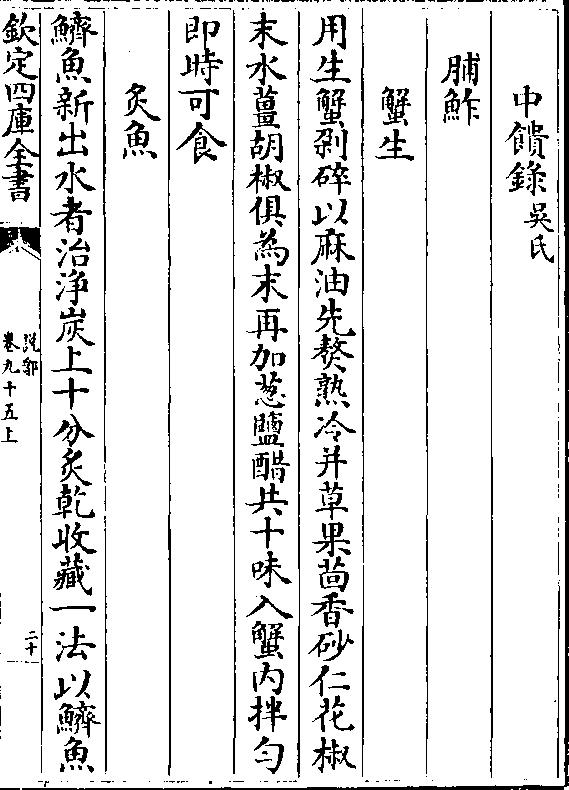 中饋録吳氏
脯鮓
蟹生
用生蟹剁碎以麻油先熬熟冷并草果茴香砂仁花椒
末水薑胡椒俱為末再加葱鹽醋共十味入蟹内拌勻
即時可食
炙魚
鱭魚新出水者治淨炭上十分炙乾收藏一法以鱭魚
欽定四庫全書
說郛
卷九十五上
二十